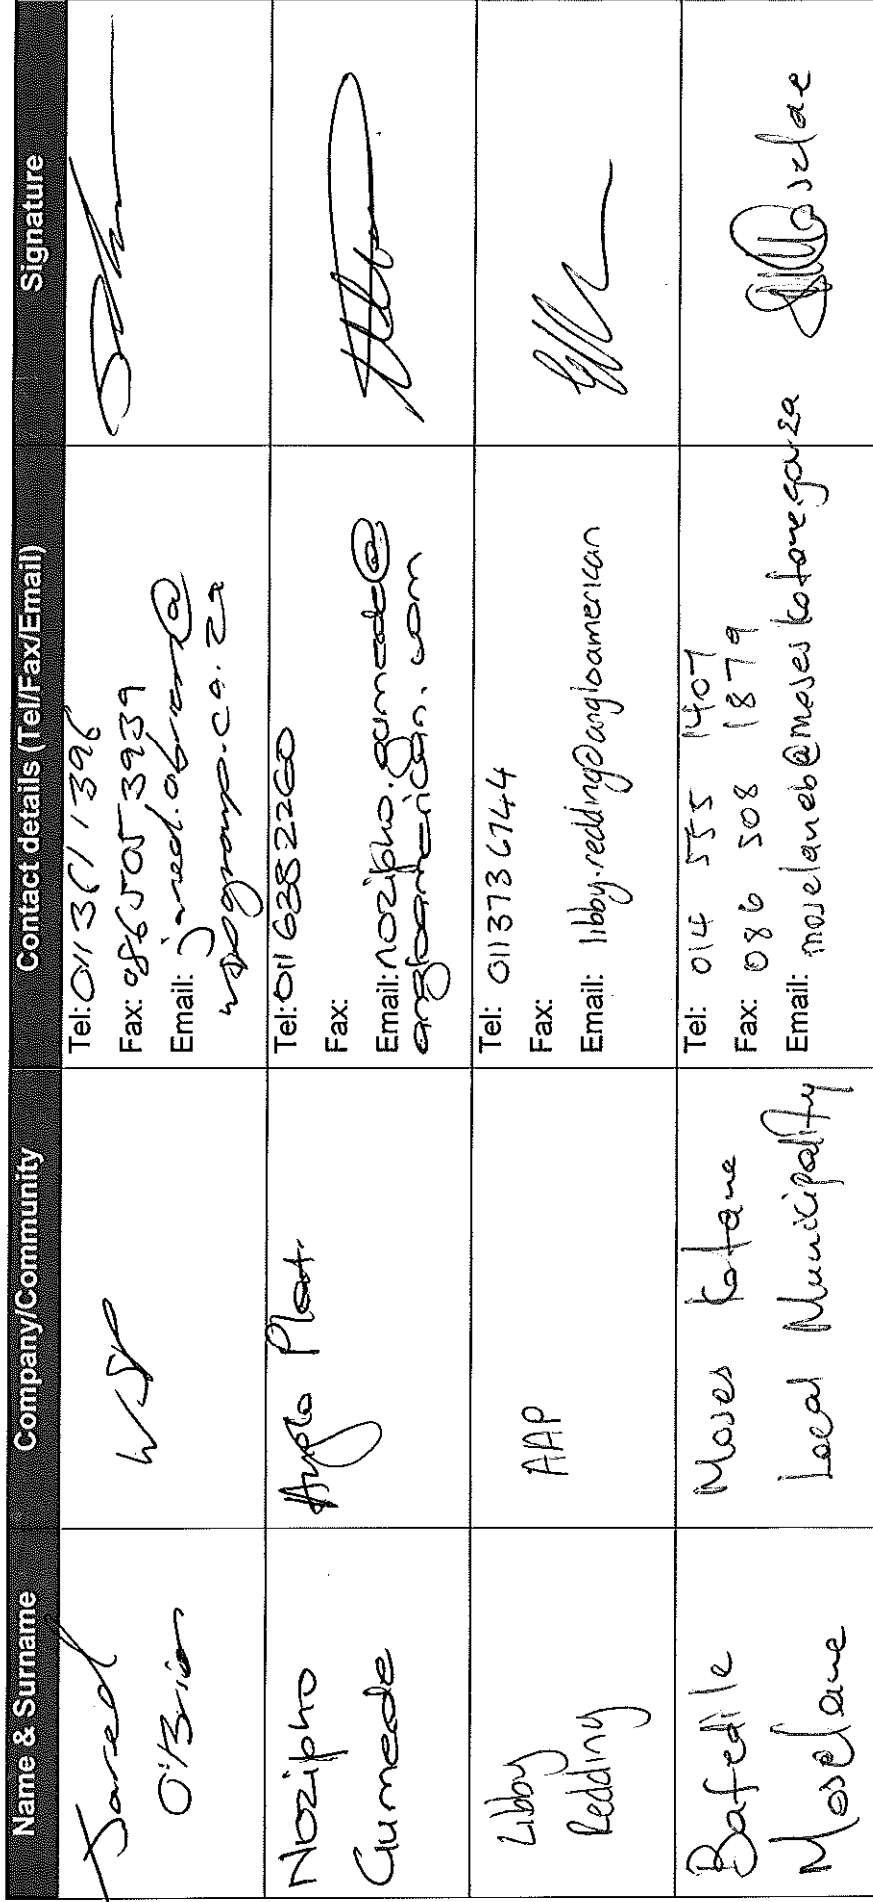 Name & Surname
Company/Community
Contact details (Tel/Fax/Email)
Signature
Jared
O'Brien
WSP
Tel: 011 361 1396
Fax: 086 505 3939
Email: jared.obrien@
wspgroup.co.za
Nozipho
Gumede
Anglo Plat.
Tel: 011 6382260
Fax:
Email: nozipho.gumede@
angloamerican.com
Libby
Redding
AAP
Tel: 011373 6744
Fax:
Email: libby.redding@angloamerican
Bafedile
Moselane
Moses Kotane
Local Municipality
Tel: 014 555 1407
Fax: 086 508 1879
Email: moselaneb@moseskotane.gov.za